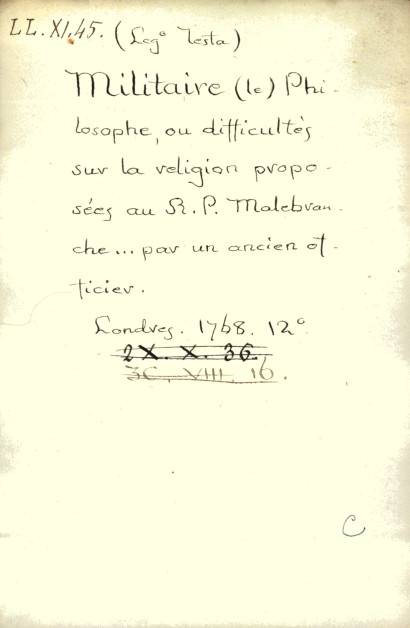 LL.XI.45. (Leg° Testa)
Militaire (le) Phi-
losophe, ou difficultés
sur la religion propo-
sées au R. P. Malebran-
che... par un ancien of-
ficier.
Londres. 1768. 12°
2X. X. 36.
3C. VIII. 16.
C